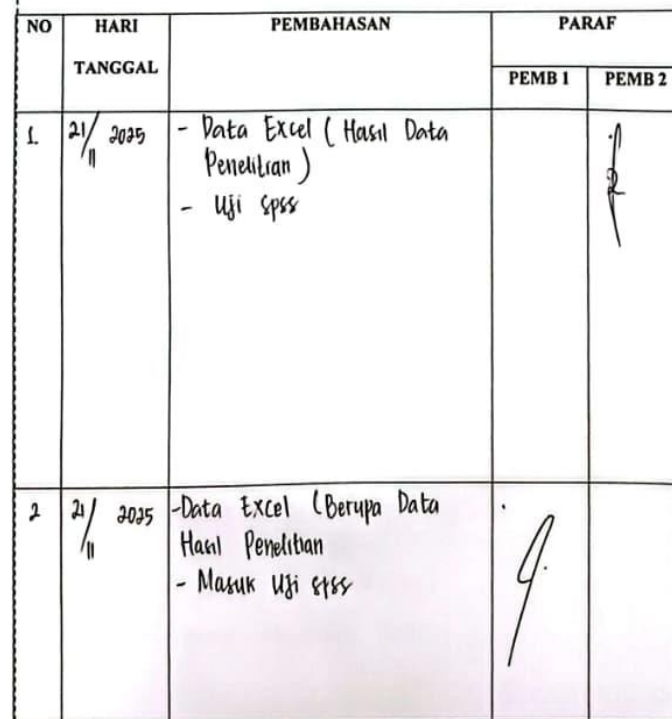 NO HARI TANGGAL PEMBAHASAN PARAF
PEMB 1 PEMB 2
1. 21/11 2025 - Data Excel ( Hasil Data
Penelitian )
- Uji Spss
2 21/11 2025 -Data Excel (Berupa Data
Hasil Penelitian
- Masuk Uji spss